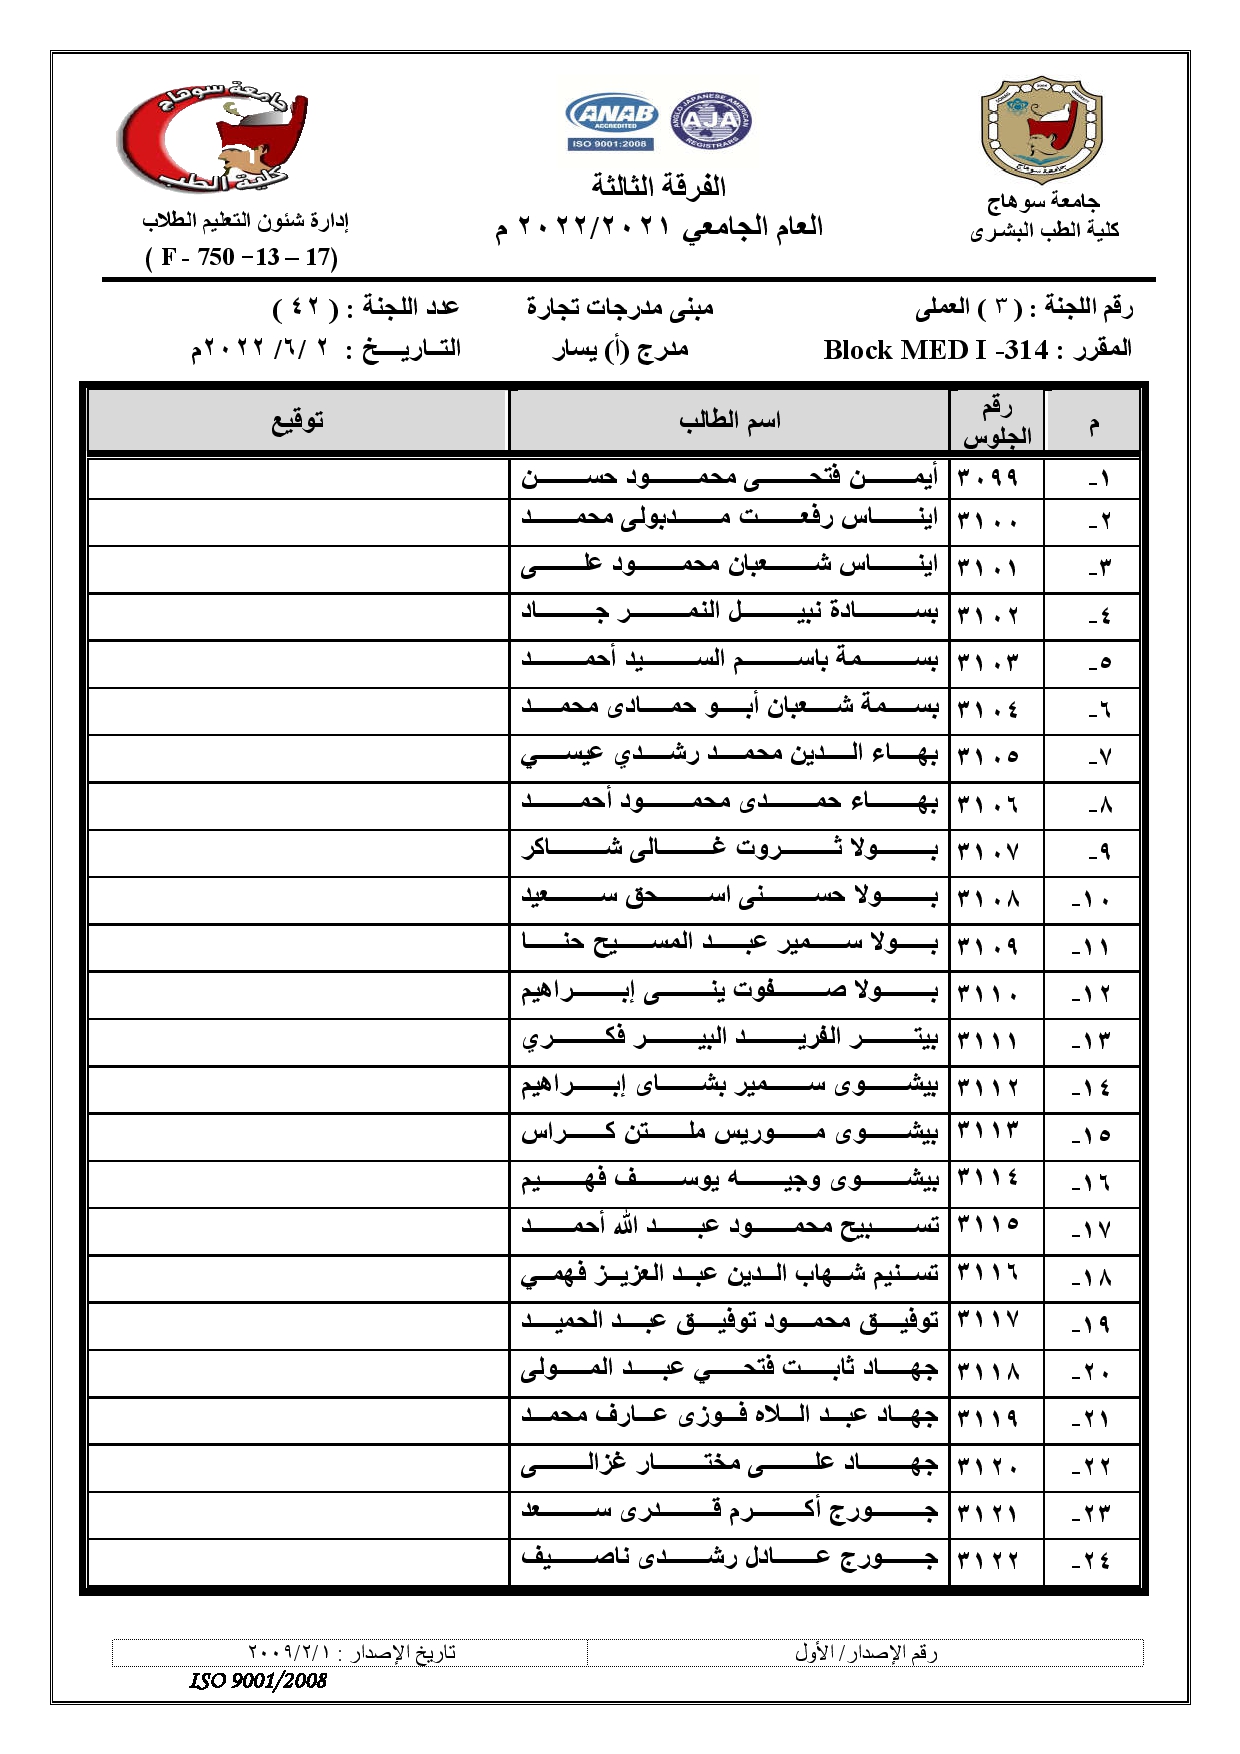 جامعة سوهاج
كلية الطب
ANAB
ACCREDITED
ISO 9001:2008
ANGLO JAPANESE AMERICAN
AJA
REGISTRARS
جامعة سوهاج
جامعة سوهاج
كلية الطب البشرى
الفرقة الثالثة
العام الجامعي ٢٠٢٢/٢٠٢١ م
إدارة شئون التعليم الطلاب
( F - 750 –13 – 17)
رقم اللجنة : ( ٣ ) العملى مبنى مدرجات تجارة عدد اللجنة : ( ٤٢ )
المقرر : Block MED I -314 مدرج (أ) يسار التاريخ : ٢ /٦/ ٢٠٢٢م
م رقم الجلوس اسم الطالب توقيع
١- ٣٠٩٩ أيمن فتحى محمود حسن
٢- ٣١٠٠ ايناس رفعت مدبولى محمد
٣- ٣١٠١ ايناس شعبان محمود على
٤- ٣١٠٢ بسادة نبيل النمر جاد
٥- ٣١٠٣ بسمة باسم السيد أحمد
٦- ٣١٠٤ بسمة شعبان أبو حمادى محمد
٧- ٣١٠٥ بهاء الدين محمد رشدي عيسي
٨- ٣١٠٦ بهاء حمدى محمود أحمد
٩- ٣١٠٧ بولا ثروت غالى شاكر
١٠- ٣١٠٨ بولا حسنى اسحق سعيد
١١- ٣١٠٩ بولا سمير عبد المسيح حنا
١٢- ٣١١٠ بولا صفوت ينى إبراهيم
١٣- ٣١١١ بيتر الفريد البير فكري
١٤- ٣١١٢ بيشوى سمير بشاى إبراهيم
١٥- ٣١١٣ بيشوى موريس ملتن كراس
١٦- ٣١١٤ بيشوى وجيه يوسف فهيم
١٧- ٣١١٥ تسبيح محمود عبد الله أحمد
١٨- ٣١١٦ تسنيم شهاب الدين عبد العزيز فهمي
١٩- ٣١١٧ توفيق محمود توفيق عبد الحميد
٢٠- ٣١١٨ جهاد ثابت فتحي عبد المولى
٢١- ٣١١٩ جهاد عبد اللاه فوزى عارف محمد
٢٢- ٣١٢٠ جهاد على مختار غزالى
٢٣- ٣١٢١ جورج أكرم قدرى سعد
٢٤- ٣١٢٢ جورج عادل رشدى ناصيف
رقم الإصدار/ الأول تاريخ الإصدار : ٢٠٠٩/٢/١
ISO 9001/2008